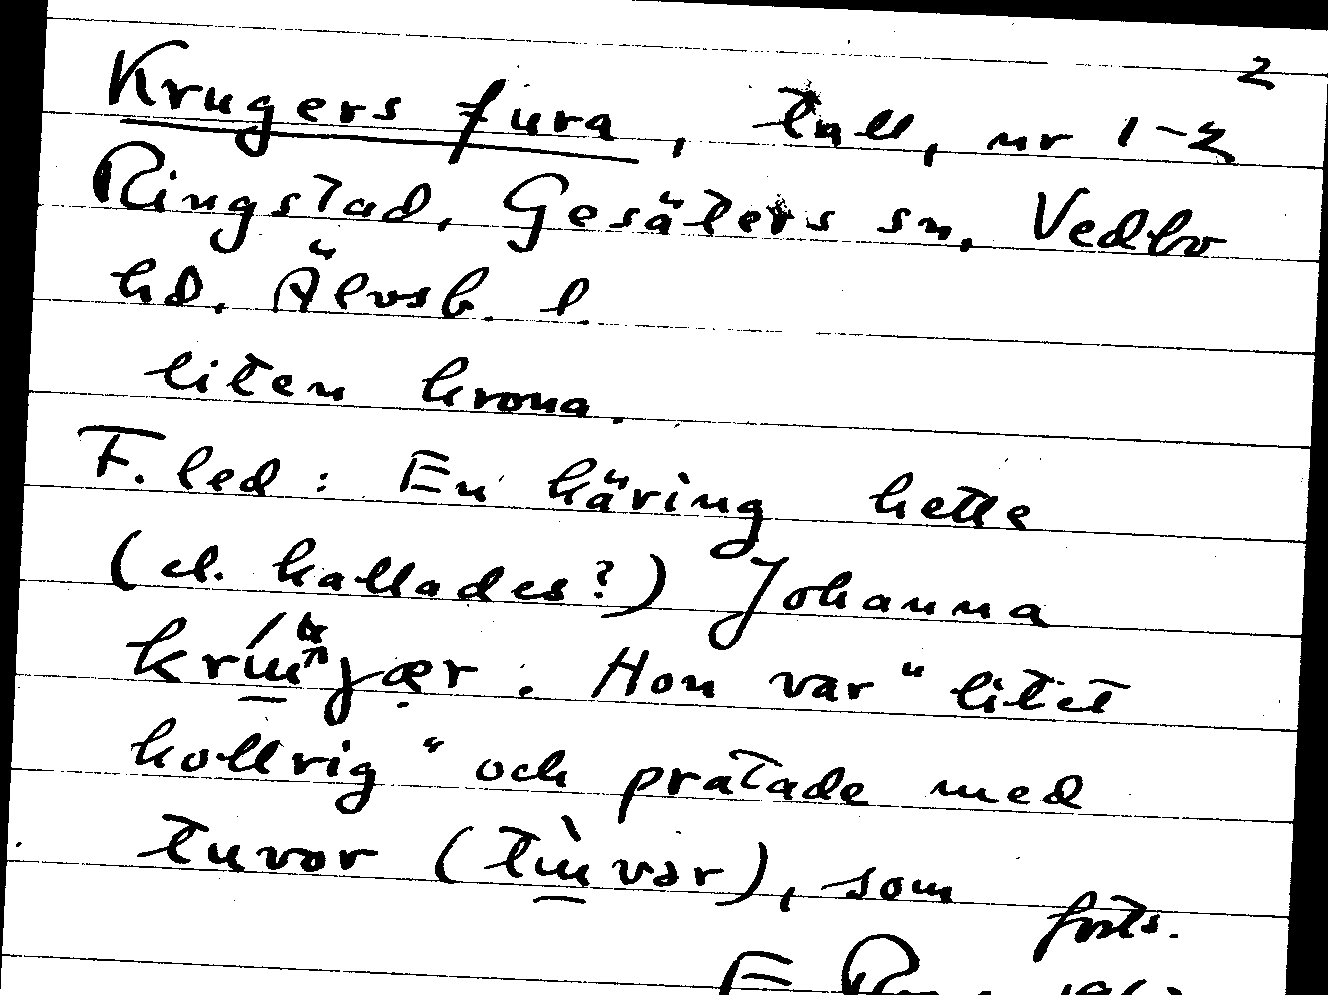 2
Krugers fura, tall, nr 1-2
Ringstad, Gesäters sn, Vedbo
hd. Älvsb. l.
liten krona.
F. led: En käring hette
(el. kallades?) Johanna
. Hon var "litet
kollrig" och pratade med
tuvor (), som
forts.